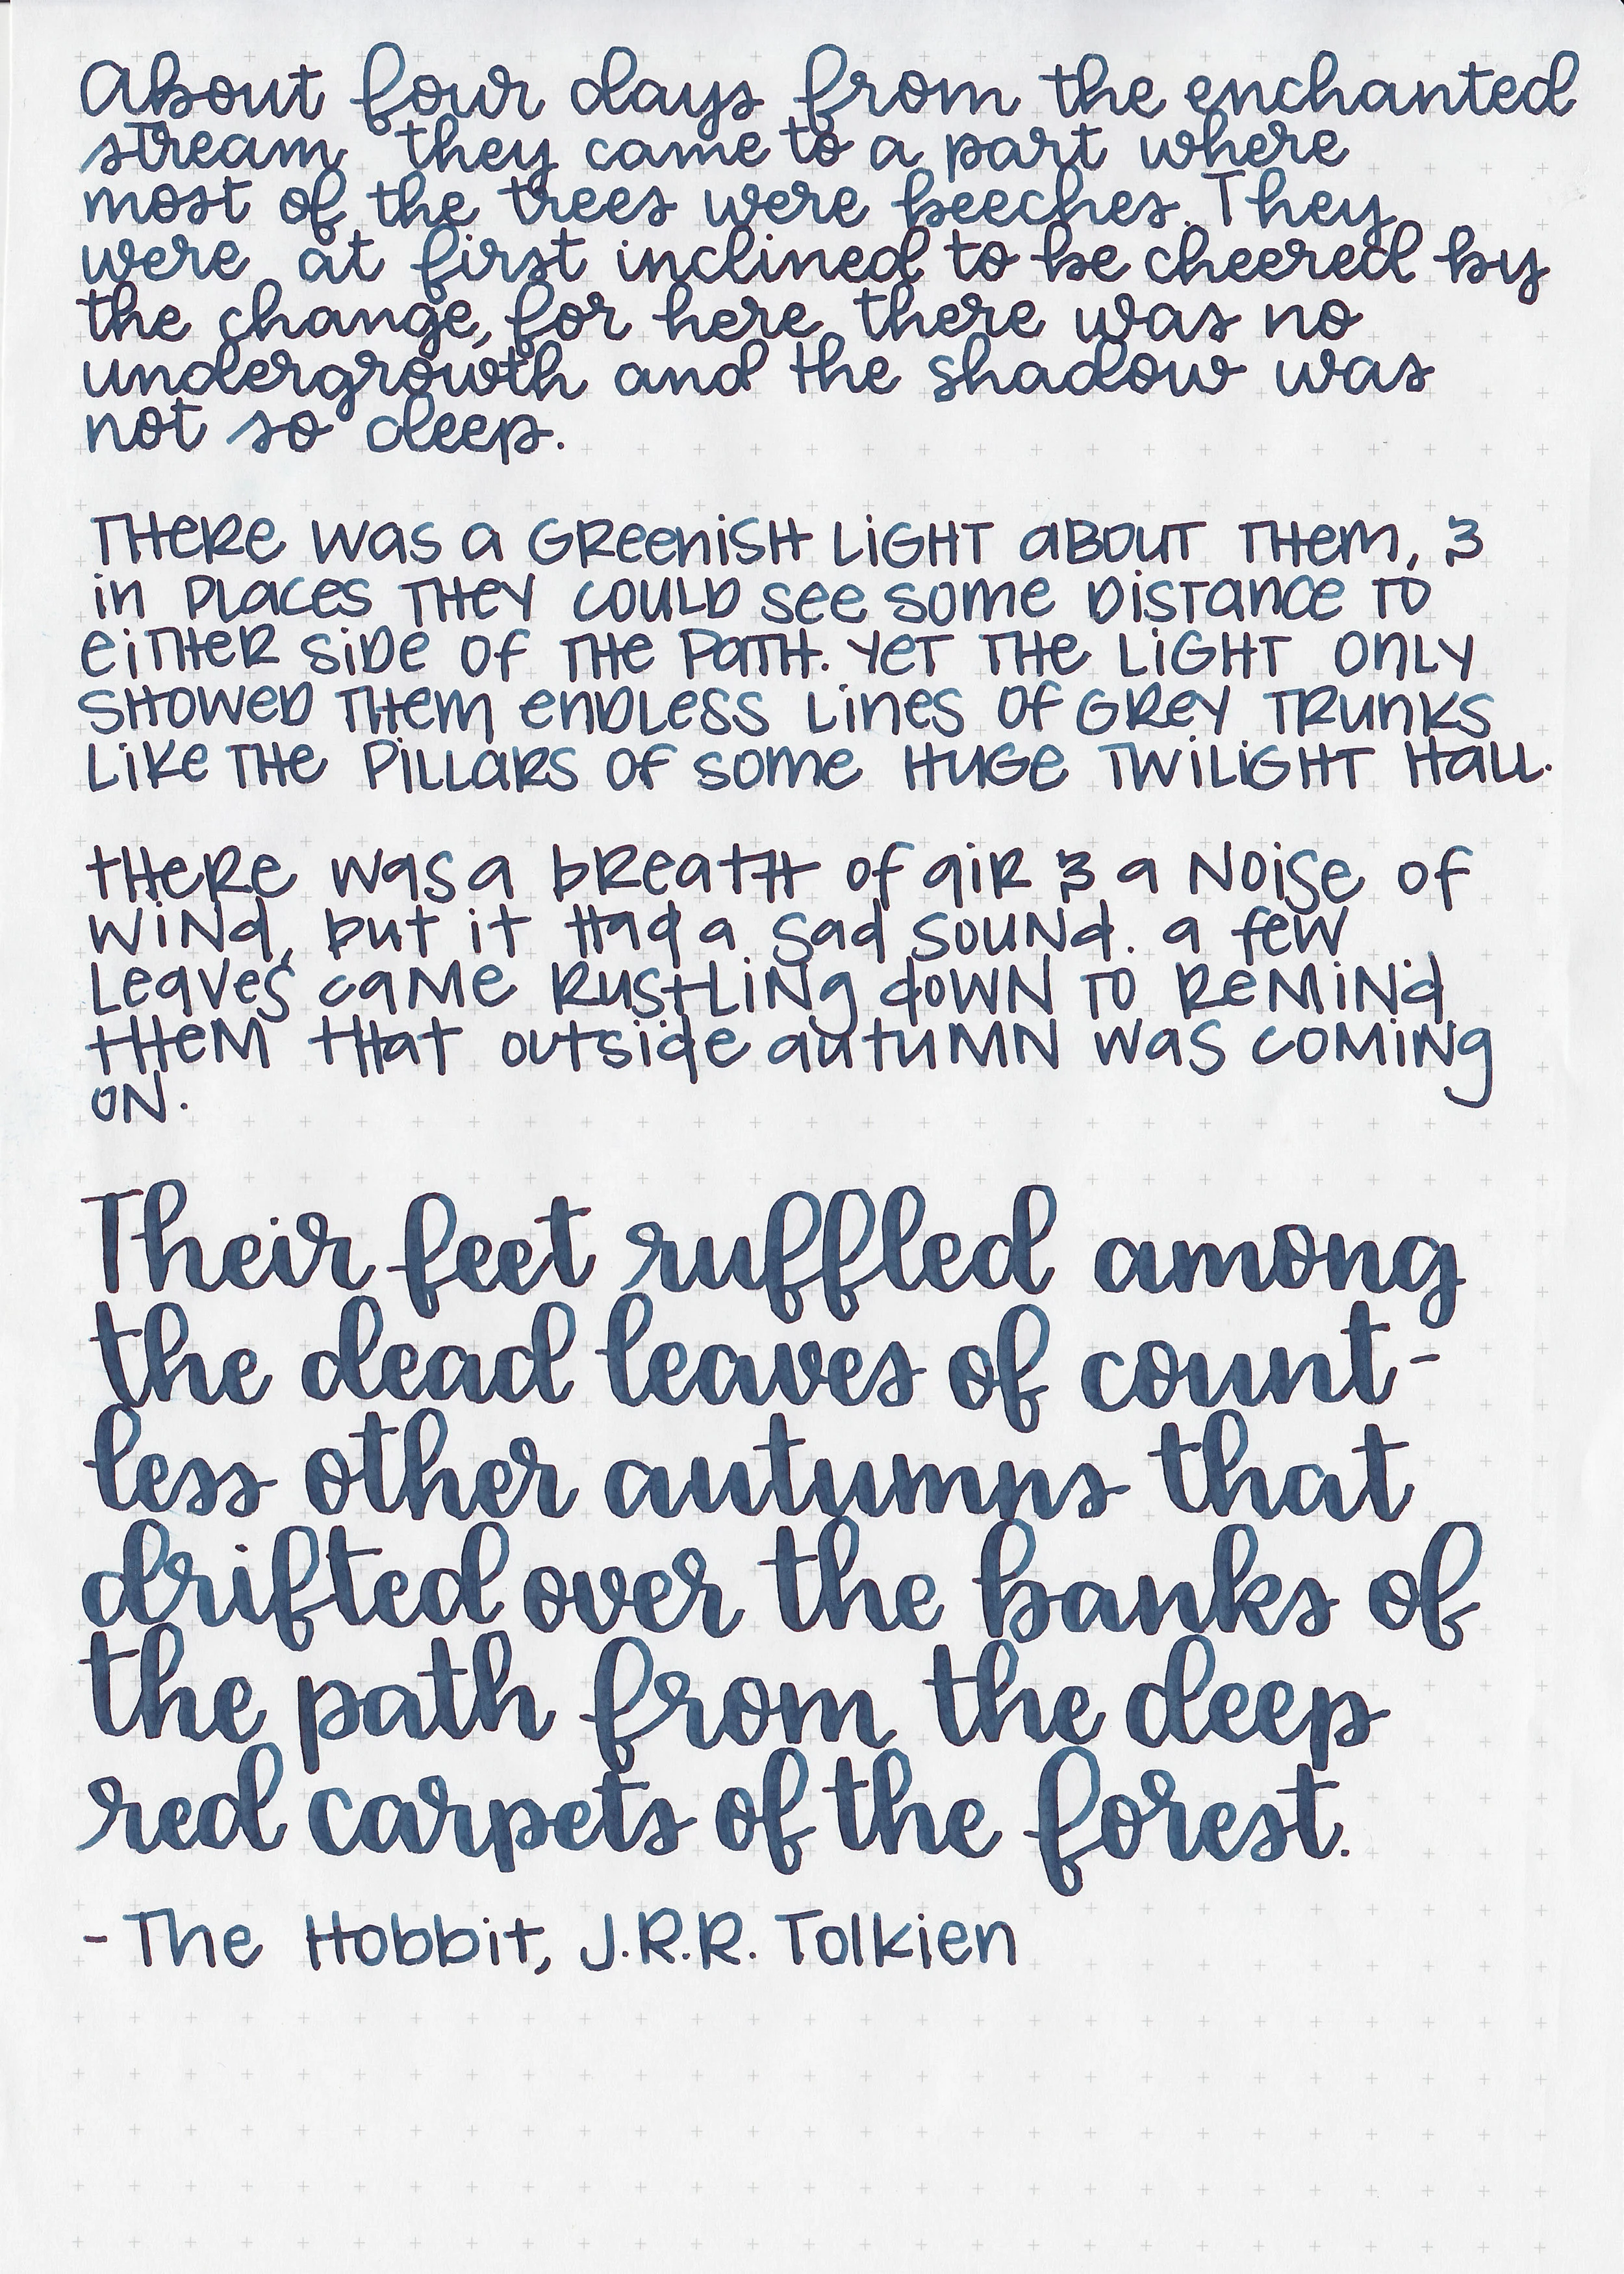 About four days from the enchanted
stream they came to a part where
most of the trees were beeches. They
were at first inclined to be cheered by
the change, for here there was no
undergrowth and the shadow was
not so deep.
THERE WAS A GREENISH LIGHT ABOUT THEM, &
IN PLACES THEY COULD SEE SOME DISTANCE TO
EITHER SIDE OF THE PATH. YET THE LIGHT ONLY
SHOWED THEM ENDLESS LINES OF GREY TRUNKS
LIKE THE PILLARS OF SOME HUGE TWILIGHT HALL.
THERE WAS A BREATH OF AIR & A NOISE OF
WIND, BUT IT HAD A SAD SOUND. A FEW
LEAVES CAME RUSTLING DOWN TO REMIND
THEM THAT OUTSIDE AUTUMN WAS COMING
ON.
Their feet ruffled among
the dead leaves of count-
less other autumns that
drifted over the banks of
the path from the deep
red carpets of the forest.
- The Hobbit, J.R.R. Tolkien